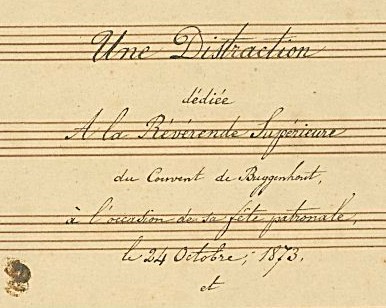 Une Distraction
dédiée
A la Révérende Supérieure
du Couvent de Buggenhout,
à l'occasion de sa fête patronale,
le 24 Octobre, 1873,
et